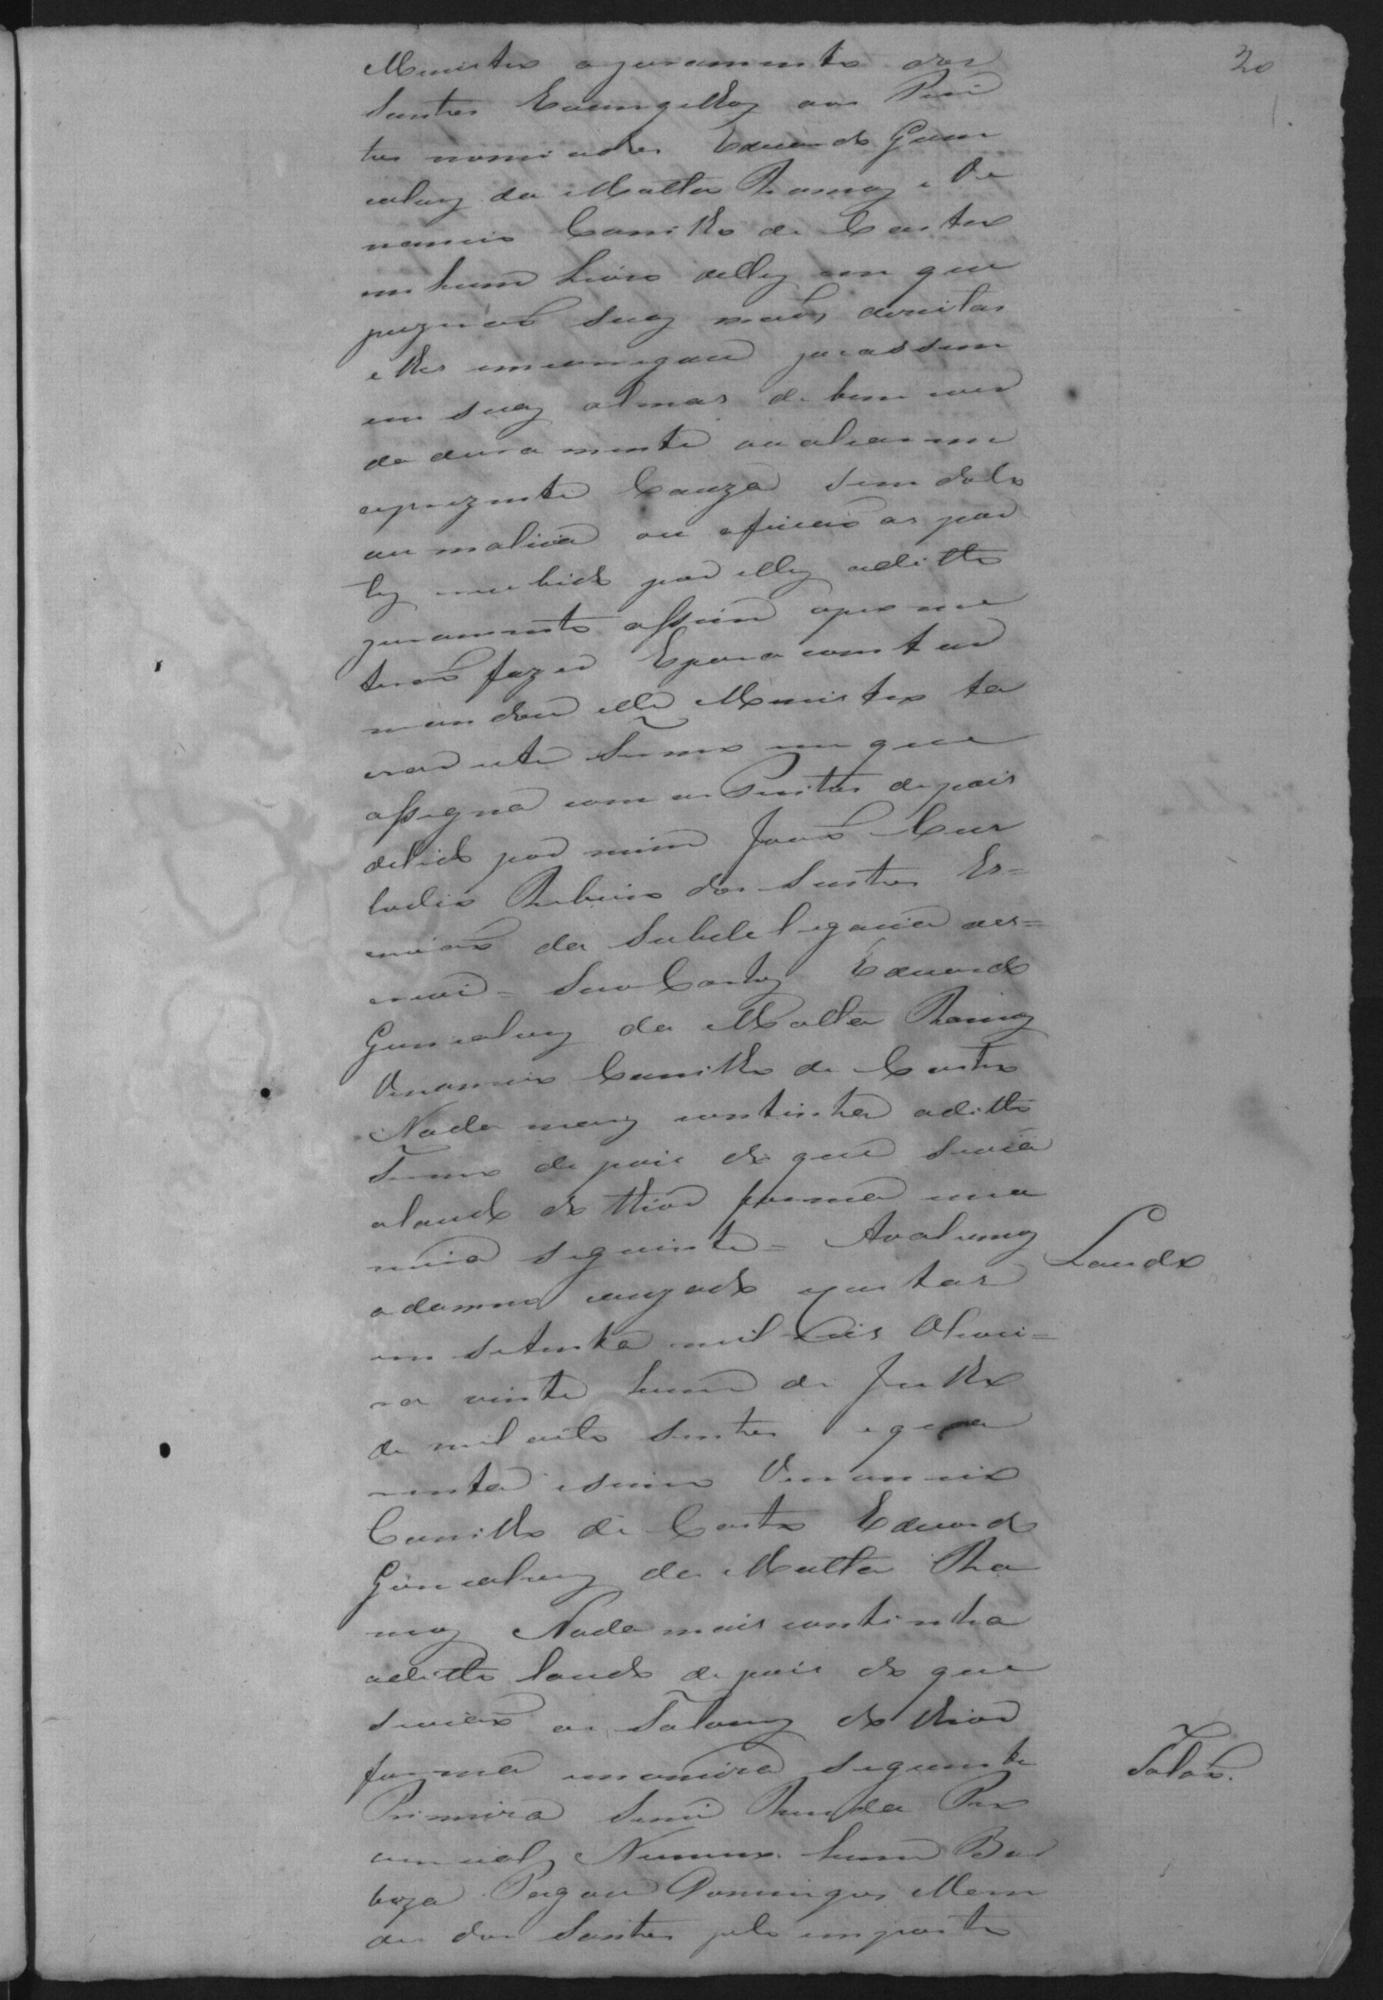 20
Ministro ojuramento dos
Santos Evangelhos aos Peri
tos nomiados Eduardo Gon
calvez da Matta Ramoz e Ve
nancio Camillo de Castro
em hum Livro dellez em que
puzeraõ suaz maõs direitas
elhes emcarregou jurassem
em suaz almas de bem ver
dadeiramente avaliarem
aprezente Cauza sem dolo
ou malicia ou afeicaõ as par
tez recebido por ellez oditto
juramento assim oprome
teraõ fazer Epara constar
mandou elle Ministro la
vrar este Termo em que
assigna com os Peritos depois
delido por mim Joaõ
Ribeiro dos Santos Es=
crivaõ da Subdelegacia oes=
crevi = Eduardo
Goncalvez da Matta Ramoz
Venancio Camillo de Castro
Nada maiz continha oditto
Termo depois do que sevia
olaudo do thior forma ema
neira seguinte = Avaliamoz
odamno cauzado
em setenta mil reis Olivei=
ra vinte hum de Julho
de mil oito sentos equa
renta Venancio
Camillo de Castro Eduardo
Goncalvez da Matta Ra
moz Nada mais continha
oditto laudo depois do que
seviaõ os Taloenz do thior
forma emaneira seguinte
Primeira Renda Pro
vencial Numero hum Bar
boza Pagou Domingos Men
des dos Santos pelo imposto
Laudo
Talaõ.